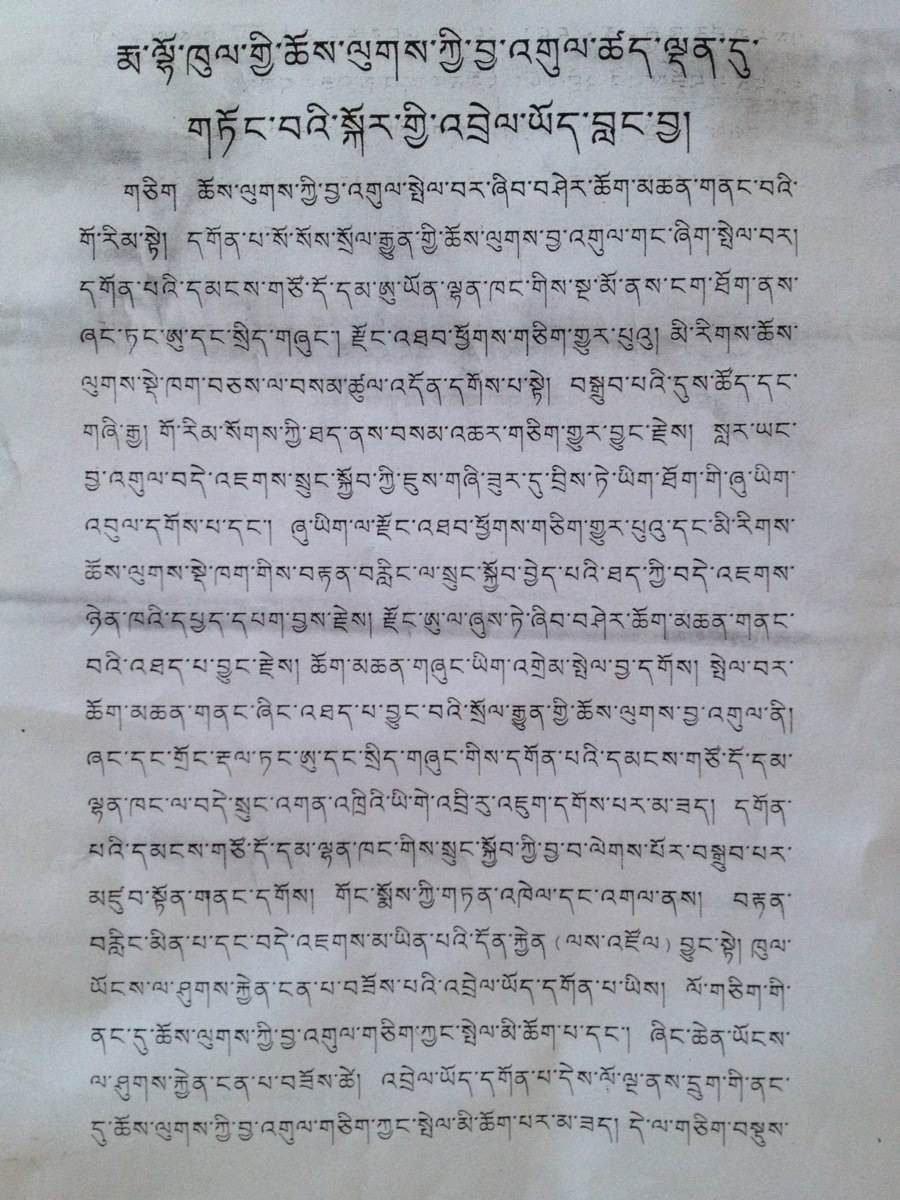 རྨ་ལྷོ་ཁུལ་གྱི་ཆོས་ལུགས་ཀྱི་བྱ་འགུལ་ཚད་ལྡན་དུ་
གཏོང་བའི་སྐོར་གྱི་འབྲེལ་ཡོད་བླང་བྱ།
གཅིག ཆོས་ལུགས་ཀྱི་བྱ་འགུལ་སྤེལ་བར་ཞིབ་བཤེར་ཆོག་མཆན་གནང་བའི་
གོ་རིམ་སྟེ། དགོན་པ་སོ་སོས་སྲོལ་རྒྱུན་གྱི་ཆོས་ལུགས་བྱ་འགུལ་གང་ཞིག་སྤེལ་བར།
དགོན་པའི་དམངས་གཙོ་དོ་དམ་ཨུ་ཡོན་ལྷན་ཁང་གིས་སྔ་མོ་ནས་ངག་ཐོག་ནས་
ཞང་ཏང་ཨུ་དང་སྲིད་གཞུང་། རྫོང་འཐབ་ཕྱོགས་གཅིག་གྱུར་པུའུ། མི་རིགས་ཆོས་
ལུགས་སྡེ་ཁག་བཅས་ལ་བསམ་ཚུལ་འདོན་དགོས་པ་སྟེ། བསྒྲུབ་པའི་དུས་ཚོད་དང་
གཞི་རྒྱ། གོ་རིམ་སོགས་ཀྱི་ཐད་ནས་བསམ་འཆར་གཅིག་གྱུར་བྱུང་རྗེས། སླར་ཡང་
བྱ་འགུལ་བདེ་འཇགས་སྲུང་སྐྱོབ་ཀྱི་ཇུས་གཞི་ཟུར་དུ་བྲིས་ཏེ་ཡིག་ཐོག་གི་ཞུ་ཡིག་
འབུལ་དགོས་པ་དང་། ཞུ་ཡིག་ལ་རྫོང་འཐབ་ཕྱོགས་གཅིག་གྱུར་པུའུ་དང་མི་རིགས་
ཆོས་ལུགས་སྡེ་ཁག་གིས་བརྟན་བརླིང་ལ་སྲུང་སྐྱོབ་བྱེད་པའི་ཐད་ཀྱི་བདེ་འཇགས་
ཉེན་ཁའི་དཔྱད་དཔག་བྱས་རྗེས། རྫོང་ཨུ་ལ་ཞུས་ཏེ་ཞིབ་བཤེར་ཆོག་མཆན་གནང་
བའི་འཐད་པ་བྱུང་རྗེས། ཆོག་མཆན་གཞུང་ཡིག་འགྲེམ་སྤེལ་བྱ་དགོས། སྤེལ་བར་
ཆོག་མཆན་གནང་ཞིང་འཐད་པ་བྱུང་བའི་སྲོལ་རྒྱུན་གྱི་ཆོས་ལུགས་བྱ་འགུལ་ནི།
ཞང་དང་གྲོང་རྡལ་ཏང་ཨུ་དང་སྲིད་གཞུང་གིས་དགོན་པའི་དམངས་གཙོ་དོ་དམ་
ལྷན་ཁང་ལ་བདེ་སྲུང་འགན་འཁྲིའི་ཡི་གེ་འབྲི་རུ་འཇུག་དགོས་པར་མ་ཟད། དགོན་
པའི་དམངས་གཙོ་དོ་དམ་ལྷན་ཁང་གིས་སྲུང་སྐྱོབ་ཀྱི་བྱ་བ་ལེགས་པོར་བསྒྲུབ་པར་
མཛུབ་སྟོན་གནང་དགོས། གོང་སྨོས་ཀྱི་གཏན་འཁེལ་དང་འགལ་ནས། བརྟན་
བརླིང་མིན་པ་དང་བདེ་འཇགས་མ་ཡིན་པའི་དོན་རྐྱེན་(ལས་འཛོལ)བྱུང་སྟེ། ཁུལ་
ཡོངས་ལ་ཤུགས་རྐྱེན་ངན་པ་བཟོས་པའི་འབྲེལ་ཡོད་དགོན་པ་ཡིས། ལོ་གཅིག་གི་
ནང་དུ་ཆོས་ལུགས་ཀྱི་བྱ་འགུལ་གཅིག་ཀྱང་སྤེལ་མི་ཆོག་པ་དང་། ཞིང་ཆེན་ཡོངས་
ལ་ཤུགས་རྐྱེན་ངན་པ་བཟོས་ཚེ། འབྲེལ་ཡོད་དགོན་པ་དེས་ལོ་ལྔ་ནས་དྲུག་གི་ནང་
དུ་ཆོས་ལུགས་ཀྱི་བྱ་འགུལ་གཅིག་ཀྱང་སྤེལ་མི་ཆོག་པར་མ་ཟད། དེ་ལ་གཅིག་བསྡུས་